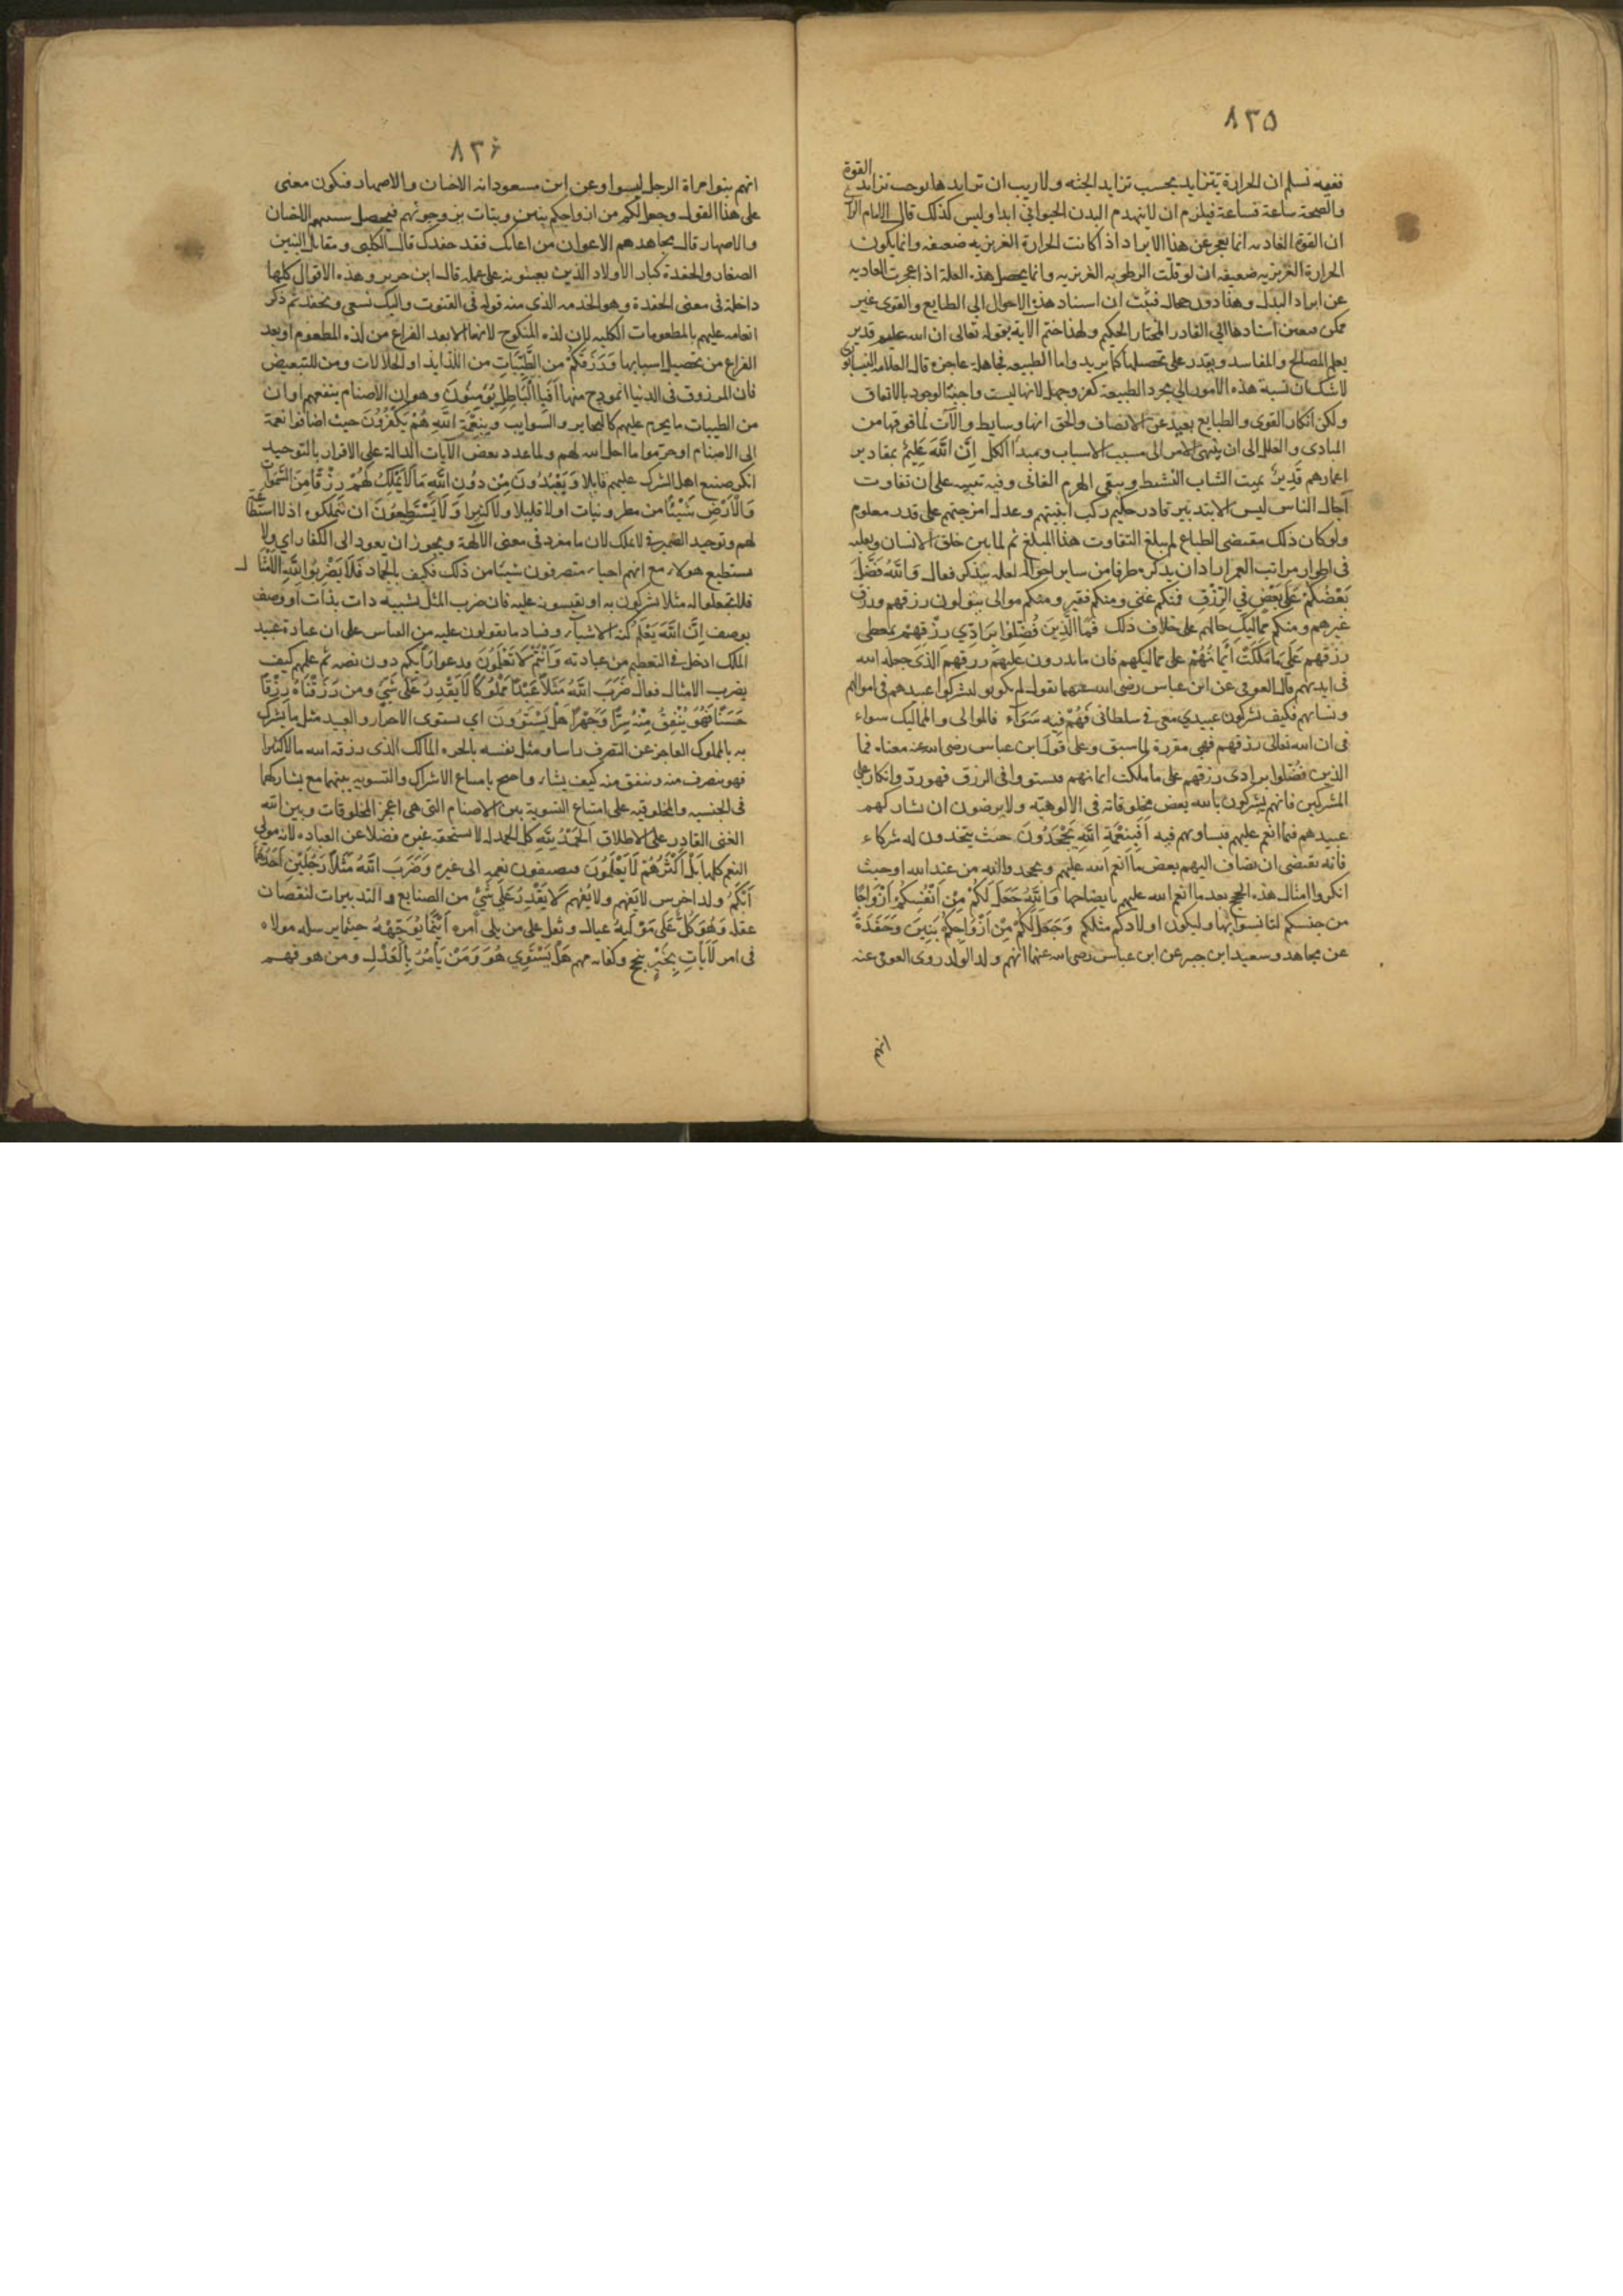 ٨٣٥
ففيه نسلم ان الحرارة تتزايد بحسب تزايد الجثه ولا ريب ان تزايدها يوجب تزايد القوة
والصحة ساعة فساعة فيلزم ان لا ينهدم البدن الحيواني ابدا وليس كذلك قال الامام
ان القوة الغاديه انما تعجز عن هذا الايراد اذا كانت الحرارة الغريزيه ضعيفه وانما يكون
الحرارة الغريزيه ضعيفه ان لو قلت الرطوبه الغريزيه وانما يحصل هذه العلة اذا عجزت الغاديه
عن ايراد البدل وهذا دور محال فثبت ان اسناد هذه الاحوال الى الطبايع والقوى غير
ممكن فتعين اسنادها الى القادر المختار الحكيم ولهذا ختم الاية بقوله تعالى ان الله عليم قدير
يعلم المصالح والمفاسد ويقدر على تحصيلها كما يريد واما الطبيعه فجاهلة عاجزه قال العلامه النيسابوري
لا شك ان نسبة هذه الامور الى مجرد الطبيعة كفر وجهل لانها ليست واجبة الوجود بالاتفاق
ولكن انكار القوى والطبايع بعيد عن الانصاف والحق انها وسايط والآت لما فوقها من
المبادى والعلل الى ان ينتهى الامر الى مسبب الاسباب ومبدأ الكل اِنَّ اللّٰهَ عَلِيمٌ بمقادير
اعمارهم قَدِيرٌ يميت الشاب النشيط ويبقى الهرم الفانى وفيه تنبيه على ان تفاوت
آجال الناس ليس الا بتدبير قادر حكيم ركب ابنيتهم وعدل امزجتهم على قدر معلوم
ولو كان ذلك مقتضى الطباع لم يبلغ التفاوت هذا المبلغ ثم لما بين خلق الانسان وتقلبه
فى اطوار مراتب العمر اراد ان يذكر طرفا من ساير احواله لعله يتذكر فقال وَاللّٰهُ فَضَّلَ
بَعْضَكُمْ عَلٰى بَعْضٍ فِي الرِّزْقِ فمنكم غني ومنكم فقير ومنكم موالى يتولون رزقهم ورزق
غيرهم ومنكم مماليك حالهم على خلاف ذلك فَمَا الَّذِينَ فُضِّلُوا بِرَادِّي رِزْقِهِمْ بمعطى
رزقهم عَلٰى مَا مَلَكَتْ اَيْمَانُهُمْ على مماليكهم فان ما يدرون عليهم رزقهم الذى جعله الله
فى ايديهم قال العوفي عن ابن عباس رضى الله عنهما يقول لم يكونوا ليشركوا عبيدهم فى اموالهم
ونسائهم فكيف تشركون عبيدي معى فى سلطانى فَهُمْ فِيهِ سَوَآءٌ فالموالى والمماليك سواء
فى ان الله تعالى رزقهم فهى مقررة لما سبق وعلى قول ابن عباس رضى الله عنه معناه فما
الذين فضلوا برادى رزقهم على ما ملكت ايمانهم فيستووا فى الرزق فهو رد وانكار على
المشركين فانهم يشركون بالله بعض مخلوقاته فى الالوهيته ولا يرضون ان يشاركهم
عبيدهم فيما انعم عليهم فيساويهم فيه اَفَبِنِعْمَةِ اللّٰهِ يَجْحَدُونَ حيث يتخذون له شركاء
فانه يقتضى ان يضاف اليهم بعض ما انعم الله عليهم ويجحدوا انه من عند الله او حيث
انكروا امثال هذه الحجج بعد ما انعم الله عليهم بايضاحها وَاللّٰهُ جَعَلَ لَكُمْ مِنْ اَنْفُسِكُمْ اَزْوَاجًا
من جنسكم لتانسوا بها وليكون اولادكم مثلكم وَجَعَلَ لَكُمْ مِنْ اَزْوَاجِكُمْ بَنِينَ وَحَفَدَةً
عن مجاهد وسعيد ابن جبير عن ابن عباس رضى الله عنهما انهم ولد الولد روى العوفى عنه
انهم
٨٣٦
انهم بنو امراة الرجل ليسوا وعن ابن مسعود انه الاختان والاصهار فيكون معنى
على هذا القول وجعل لكم من ازواجكم بنين وبنات تزوجونهم فيحصل بسببهم الاختان
والاصهار قال مجاهد هم الاعوان من اعانك فقد حفدك قال الكلبى ومقاتل البنين
الصغار والحفدة كبار الاولاد الذين يعينونه على عمله قال ابن جرير وهذه الاقوال كلها
داخلة فى معنى الحفدة وهو الخدمه الذى منه قوله فى القنوت واليك نسعى ونحفد ثم ذكر
انعامه عليهم بالمطعومات الكليه لان لذه المنكوح لانها الا بعد الفراغ من لذه المطعوم او بعد
الفراغ من تحصيل اسبابها وَرَزَقَكُمْ مِنَ الطَّيِّبَاتِ من اللذايذ او الحلالات ومن للتبعيض
فان المرزوق فى الدنيا انموذج منها اَفَبِالْبَاطِلِ يُؤْمِنُونَ وهو ان الاصنام ينفعهم او ان
من الطيبات ما يحرم عليهم كالبحاير والسوايب وَبِنِعْمَةِ اللّٰهِ هُمْ يَكْفُرُونَ حيث اضافوا نعمة
الى الاصنام او حرموا ما احل الله لهم ولما عدد بعض الآيات الدالة على الاقرار بالتوحيد
انكر صنيع اهل الشرك عليهم قايلا وَيَعْبُدُونَ مِنْ دُونِ اللّٰهِ مَا لَا يَمْلِكُ لَهُمْ رِزْقًا مِنَ السَّمٰوَاتِ
وَالْاَرْضِ شَيْئًا من مطر ونبات او لا قليلا ولا كثيرا وَلَا يَسْتَطِيعُونَ ان يتملكوه اذ لا استطاعة
لهم وتوحيد الضمير في لا يملك لان ما مفرد فى معنى الآلهة ويجوز ان يعود الى الكفار اي ولا
يستطيع هولاء مع انهم احياء متصرفون شيئا من ذلك فكيف بالجماد فَلَا تَضْرِبُوا لِلّٰهِ الْاَمْثَالَ
فلا تجعلوا له مثلا تشركون به او تقيسونه عليه فان ضرب المثل تشبيه ذات بذات او وصف
بوصف اِنَّ اللّٰهَ يَعْلَمُ كنه الاشياء وفساد ما تقولون عليه من القياس على ان عبادة عبيد
الملك ادخل في التعظيم من عبادته وَاَنْتُمْ لَا تَعْلَمُونَ فدعوا رأيكم دون نصه ثم علمهم كيف
يضرب الامثال فقال ضَرَبَ اللّٰهُ مَثَلًا عَبْدًا مَمْلُوكًا لَا يَقْدِرُ عَلٰى شَيْءٍ ومن رَزَقْنَاهُ رِزْقًا
حَسَنًا فَهُوَ يُنْفِقُ مِنْهُ سِرًّا وَجَهْرًا هَلْ يَسْتَوُونَ اي يستوى الاحرار والعبيد مثل ما يشرك
به بالمملوك العاجز عن التصرف راسا ومثل نفسه بالحره المالك الذى رزقه الله مالا كثيرا
فهو يتصرف منه وينفق منه كيف يشاء واحتج بامتناع الاشراك والتسويه بينهما مع تشاركهما
فى الجنسيه والمخلوقيه على امتناع التسوية بين الاصنام التى هى اعجز المخلوقات وبين الله
الغنى القادر على الاطلاق اَلْحَمْدُ لِلّٰهِ كل الحمد له لا يستحقه غيره فضلا عن العباده لانه مولى
النعم كلها بَلْ اَكْثَرُهُمْ لَا يَعْلَمُونَ فيضيفون نعمه الى غيره وَضَرَبَ اللّٰهُ مَثَلًا رَجُلَيْنِ اَحَدُهُمَا
اَبْكَمُ ولد اخرس لا يَفهم ولا يُفهم لَا يَقْدِرُ عَلٰى شَيْءٍ من الصنايع والتدبيرات لنقصان
عقله وَهُوَ كَلٌّ عَلٰى مَوْلَيهُ عيال وثقل على من يلى امره اَيْنَمَا يُوَجِّهْهُ حيثما يرسله مولاه
فى امر لَا يَأْتِ بِخَيْرٍ بنجح وكفايه مهم هَلْ يَسْتَوِي هُوَ وَمَنْ يَأْمُرُ بِالْعَدْلِ ومن هو فهم